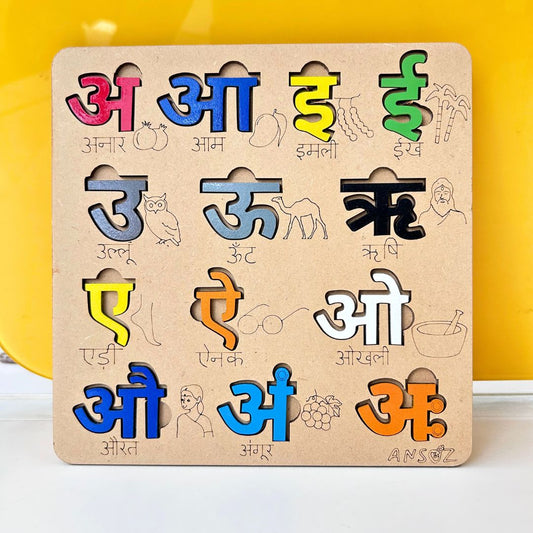 अ आ इ ई
अनार आम इमली ईख
उ ऊ ऋ
उल्लू ऊँट ऋषि
ए ऐ ओ
एड़ी ऐनक ओखली
औ अं अः
औरत अंगूर
ANSOZ